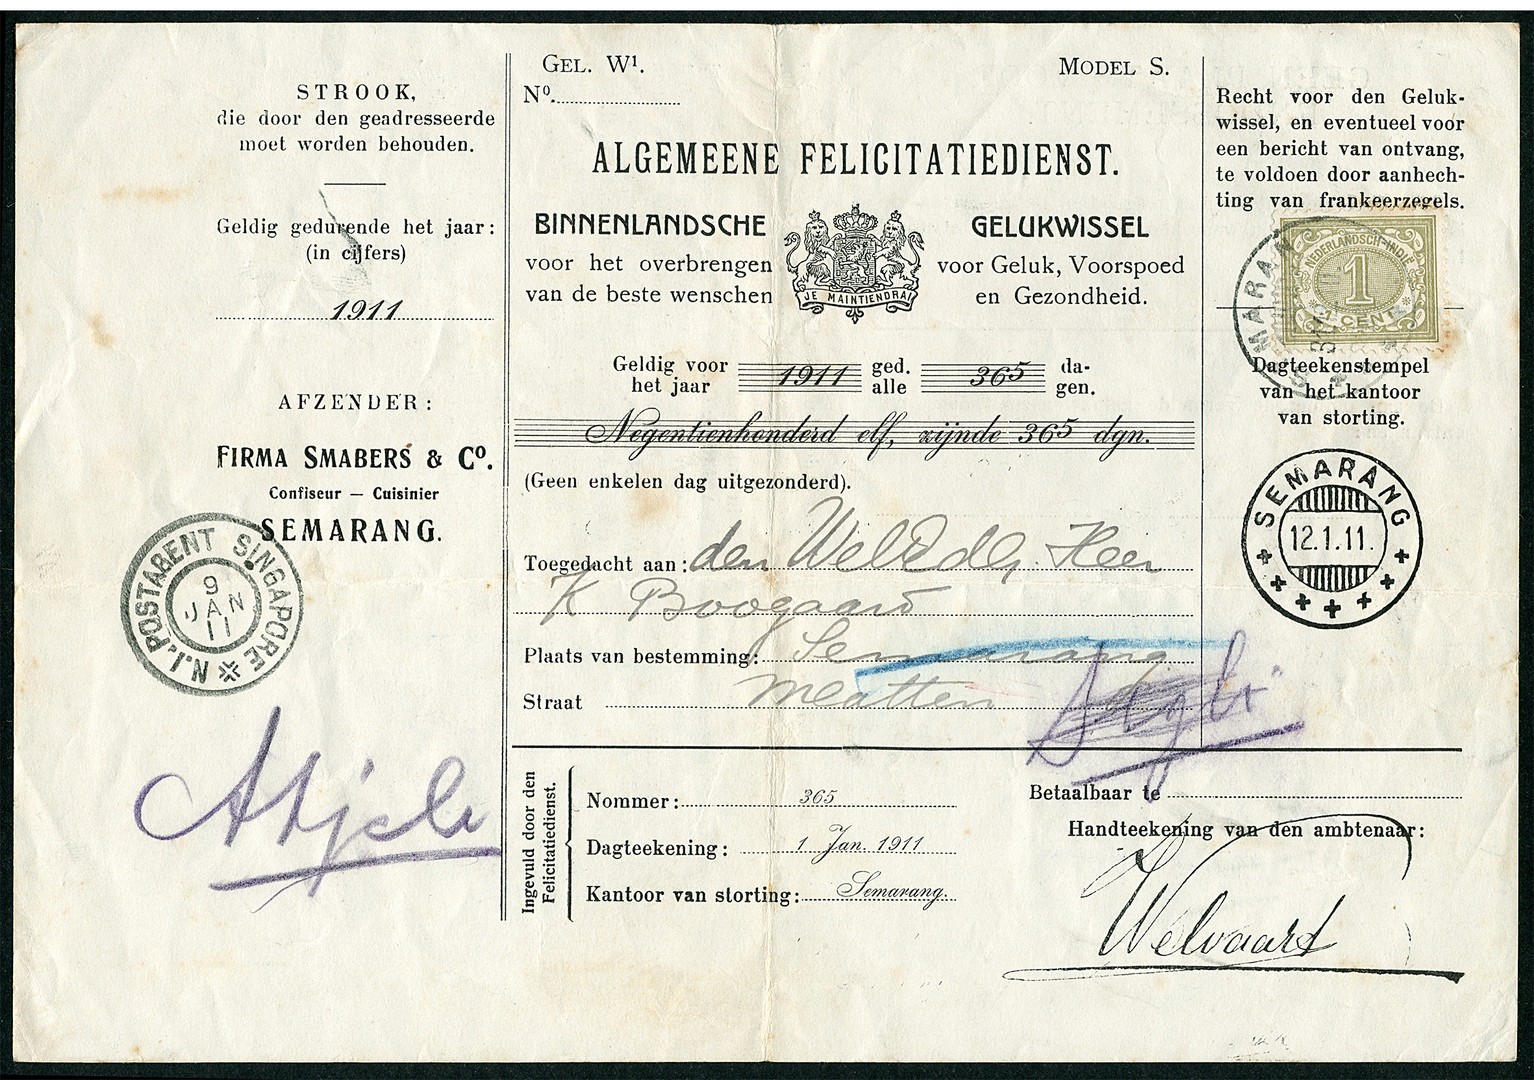 STROOK,
die door den geadresseerde
moet worden behouden.
Geldig gedurende het jaar:
(in cijfers)
1911
AFZENDER:
FIRMA SMABERS & Co.
Confiseur — Cuisinier
SEMARANG.
N.I. POSTAGENT SINGAPORE
9
JAN
11
Atjeh
GEL. W1.
MODEL S.
No.
ALGEMEENE FELICITATIEDIENST.
BINNENLANDSCHE GELUKWISSEL
voor het overbrengen
van de beste wenschen
JE MAINTIENDRAI
voor Geluk, Voorspoed
en Gezondheid.
Geldig voor het jaar 1911 ged. alle 365 dagen.
Negentienhonderd elf, zijnde 365 dgn.
(Geen enkelen dag uitgezonderd).
Toegedacht aan: den WelEdh. Heer
K Boogaard
Plaats van bestemming: Semarang
Straat
Recht voor den Geluk-
wissel, en eventueel voor
een bericht van ontvang,
te voldoen door aanhech-
ting van frankeerzegels.
NEDERLANDSCH-INDIË
1
1 CENT
SEMARANG
Dagteekenstempel
van het kantoor
van storting.
SEMARANG
12.1.11.
Ingevuld door den
Felicitatiedienst.
Nommer: 365
Dagteekening: 1 Jan. 1911
Kantoor van storting: Semarang.
Betaalbaar te
Handteekening van den ambtenaar:
Welvaart